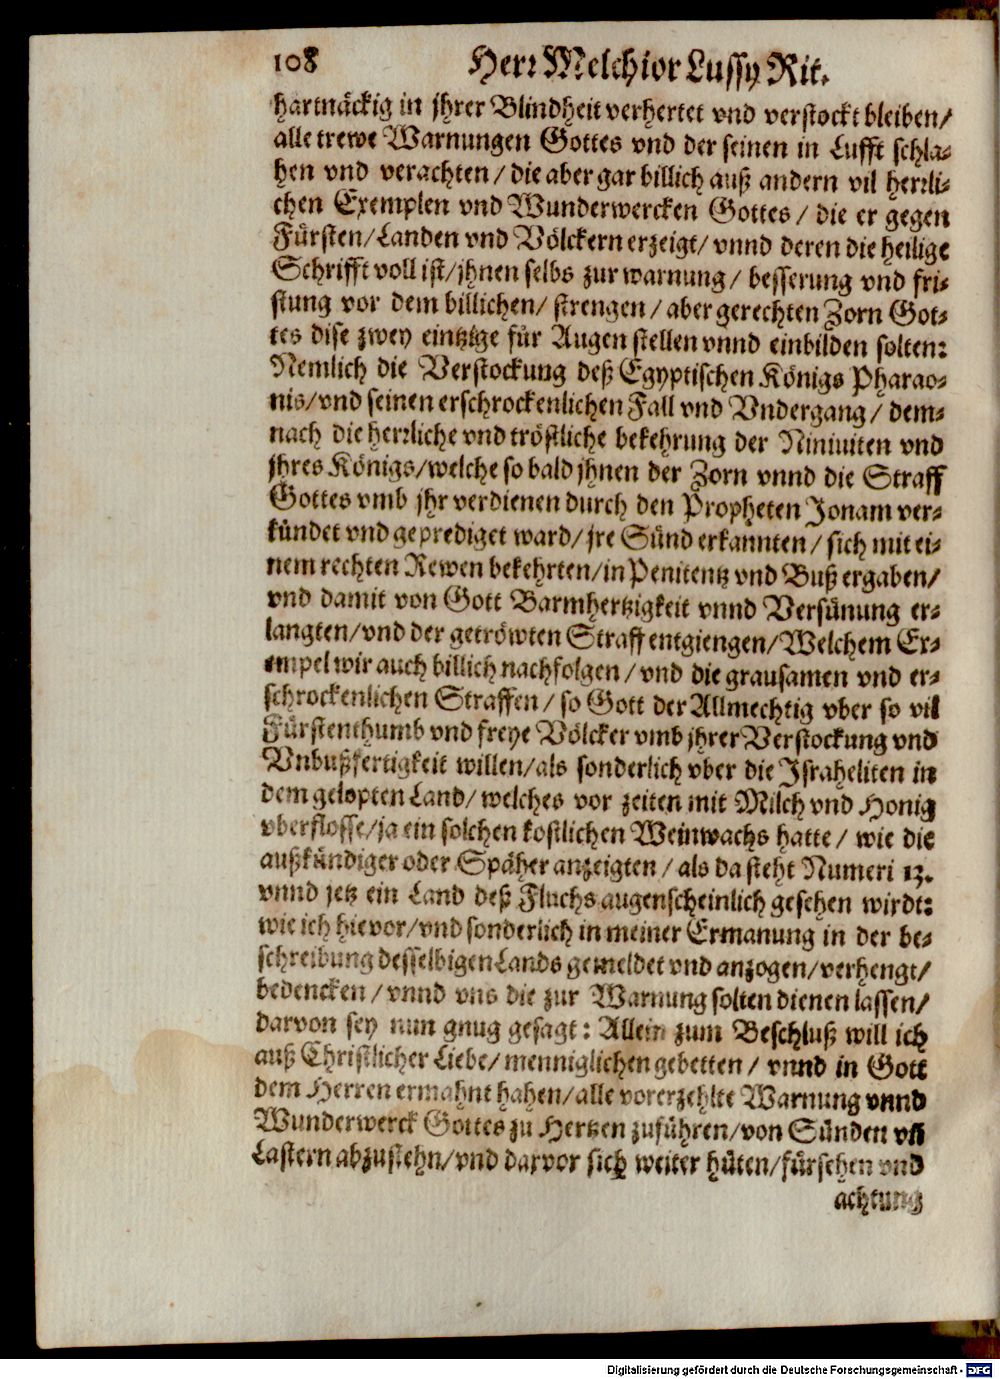 108 Herꝛ Melchior Lussy Rit.
hartnäckig in jhrer Blindheit verhertet vnd verstockt bleiben/
alle trewe Warnungen Gottes vnd der seinen in Lufft schla-
hen vnd verachten / die aber gar billich auß andern vil herꝛli-
chen Exemplen vnd Wunderwercken Gottes / die er gegen
Fürsten/ Landen vnd Völckern erzeigt/ vnnd deren die heilige
Schrifft voll ist/ jhnen selbs zur warnung / besserung vnd fri-
stung vor dem billichen/ strengen / aber gerechten Zorn Got-
tes dise zwey eintzige für Augen stellen vnnd einbilden solten:
Nemlich die Verstockung deß Egyptischen Königs Pharao-
nis/ vnd seinen erschrockenlichen Fall vnd Vndergang / dem-
nach die herꝛliche vnd tröstliche bekehrung der Niniuiten vnd
jhres Königs/ welche so bald jhnen der Zorn vnnd die Straff
Gottes vmb jhr verdienen durch den Propheten Jonam ver-
kündet vnd geprediget ward/ jre Sünd erkannten / sich mit ei-
nem rechten Rewen bekehrten/ in Penitentz vnd Buß ergaben/
vnd damit von Gott Barmhertzigkeit vnnd Versünung er-
langten/ vnd der getröwten Straff entgiengen/ Welchem Ex-
empel wir auch billich nachfolgen / vnd die grausamen vnd er-
schrockenlichen Straffen / so Gott der Allmechtig vber so vil
Fürstenthumb vnd freye Völcker vmb jhrer Verstockung vnd
Vnbußfertigkeit willen/ als sonderlich vber die Israheliten in
dem gelopten Land/ welches vor zeiten mit Milch vnd Honig
vberflosse/ ja ein solchen kostlichen Weinwachs hatte / wie die
außkündiger oder Späher anzeigten / als da steht Numeri 13.
vnnd jetz ein Land deß Fluchs augenscheinlich gesehen wirdt:
wie ich hievor/ vnd sonderlich in meiner Ermanung in der be-
schreibung desselbigen Lands gemeldet vnd anzogen/ verhengt/
bedencken / vnnd vns die zur Warnung solten dienen lassen/
darvon sey nun gnug gesagt: Allein zum Beschluß will ich
auß Christlicher Liebe/ menniglichen gebetten / vnnd in Gott
dem Herren ermahnt hahen/ alle vorerzehlte Warnung vnnd
Wunderwerck Gottes zu Hertzen zuführen/ von Sünden vñ
Lastern abzustehn/ vnd darvor sich weiter hüten/ fürsehen vnd
achtung
Digitalisierung gefördert durch die Deutsche Forschungsgemeinschaft - DFG